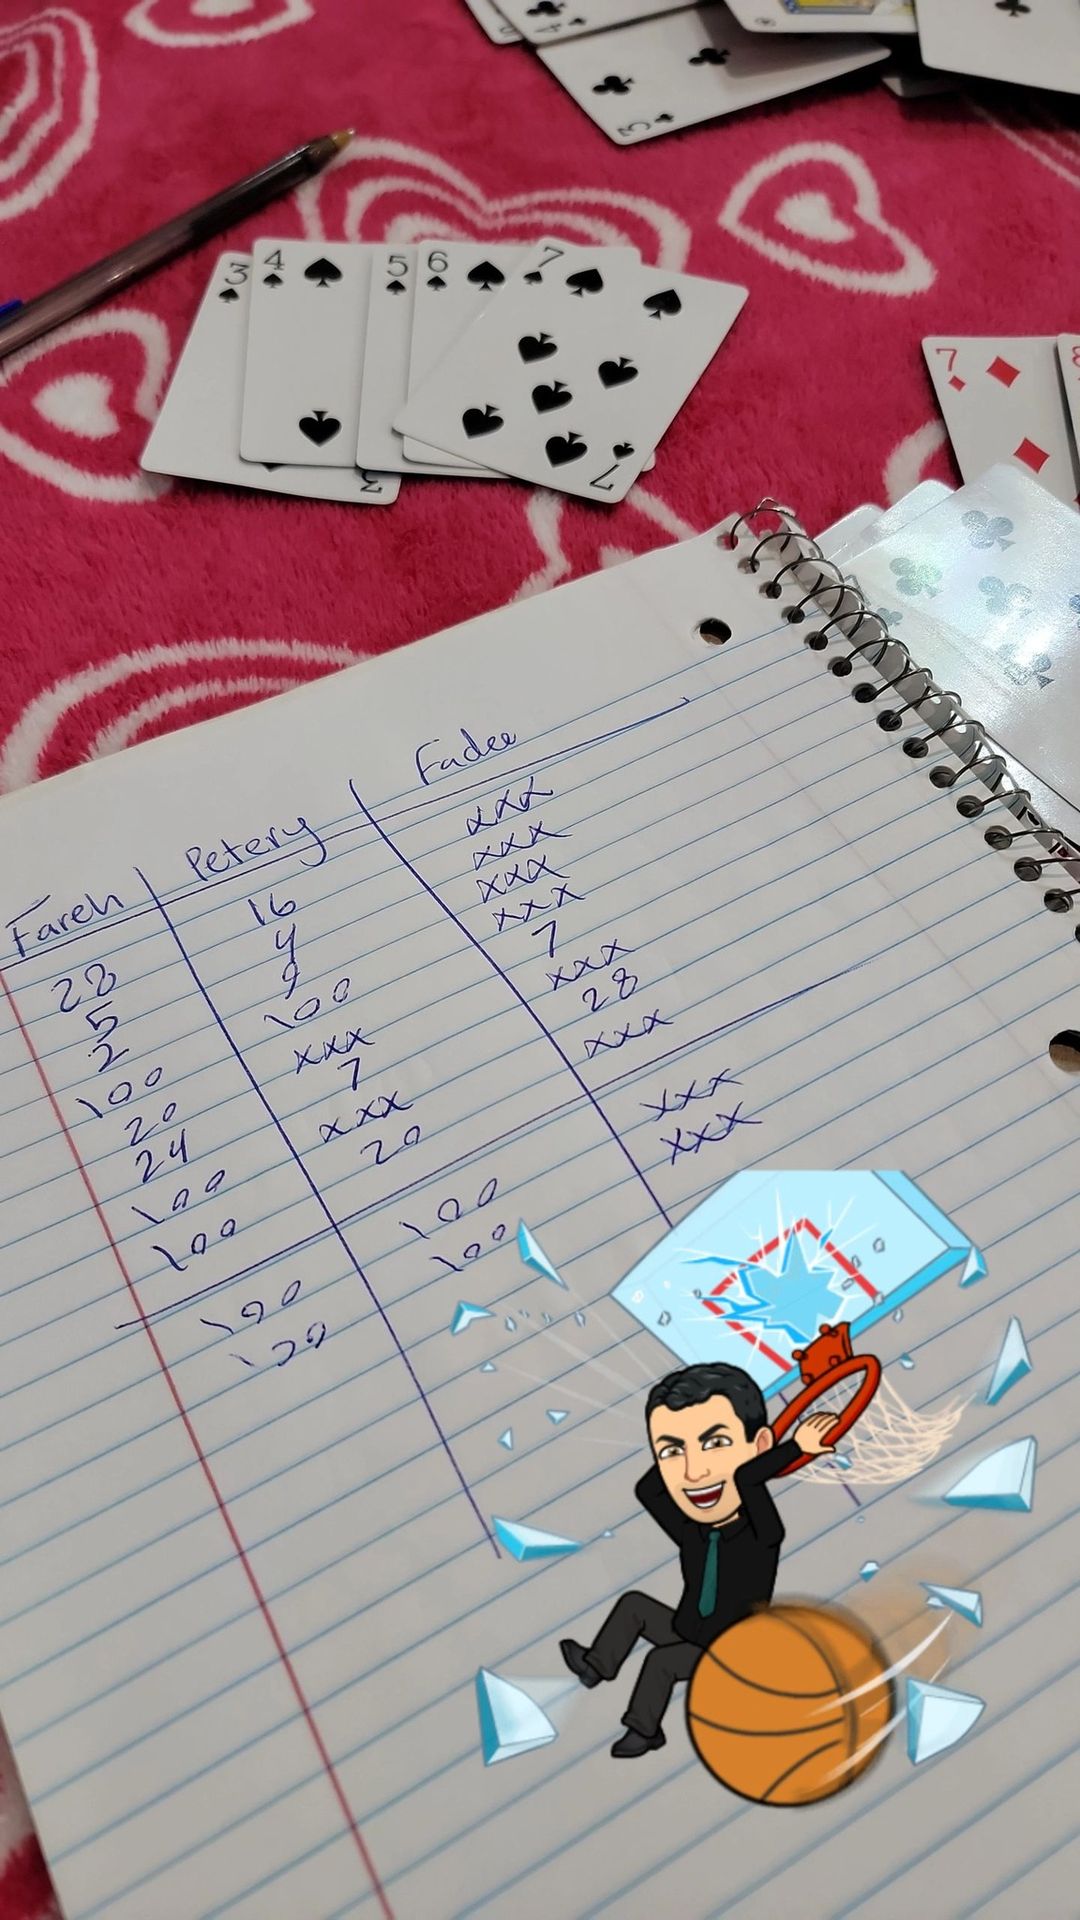 3 4 5 6 7
3
7
7
Fareh Petery Fadee
28 16 xxx
5 4 xxx
2 9 xxx
100 100 xxx
20 xxx 7
24 7 xxx
100 xxx 28
100 20 xxx
100 100 xxx
100 100 xxx